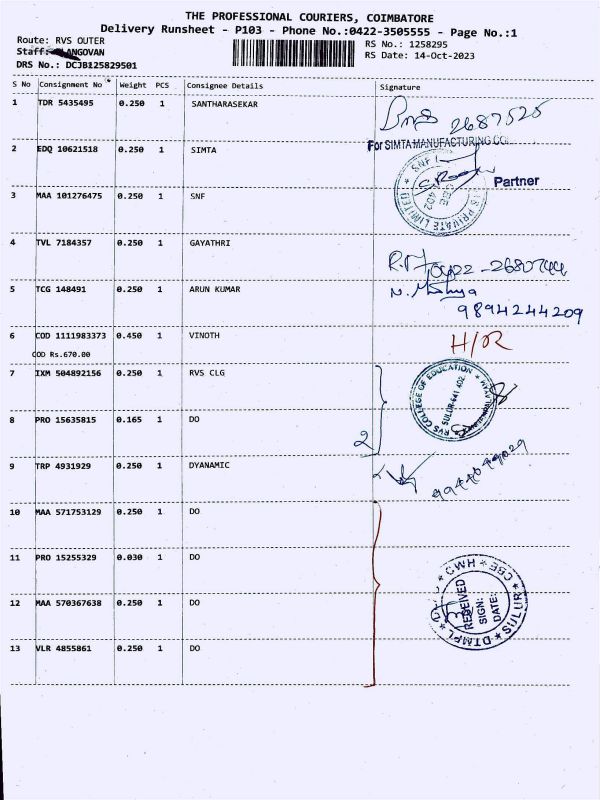 THE PROFESSIONAL COURIERS, COIMBATORE
Delivery Runsheet - P103 - Phone No.:0422-3505555 - Page No.:1
Route: RVS OUTER
RS No.: 1258295
Staff: ANGOVAN
RS Date: 14-Oct-2023
DRS No.: DCJB125829501
S No Consignment No Weight PCS Consignee Details Signature
1 TDR 5435495 0.250 1 SANTHARASEKAR
2687525
2 EDQ 10621518 0.250 1 SIMTA
For SIMTA MANUFACTURING CO
SNF
PRIVATE LIMITED
CBE
402
Partner
3 MAA 101276475 0.250 1 SNF
4 TVL 7184357 0.250 1 GAYATHRI
0422-2680744
5 TCG 148491 0.250 1 ARUN KUMAR
9894244209
6 COD 1111983373 0.450 1 VINOTH
H/R
COD Rs.670.00
7 IXM 504892156 0.250 1 RVS CLG
RVS COLLEGE OF EDUCATION
SULUR-641 402
8 PRO 15635815 0.165 1 DO
2
9 TRP 4931929 0.250 1 DYANAMIC
10 MAA 571753129 0.250 1 DO
11 PRO 15255329 0.030 1 DO
CWH * CBE
RECEIVED
SIGN:
DATE:
DTMPL * SULUR
12 MAA 570367638 0.250 1 DO
13 VLR 4855861 0.250 1 DO